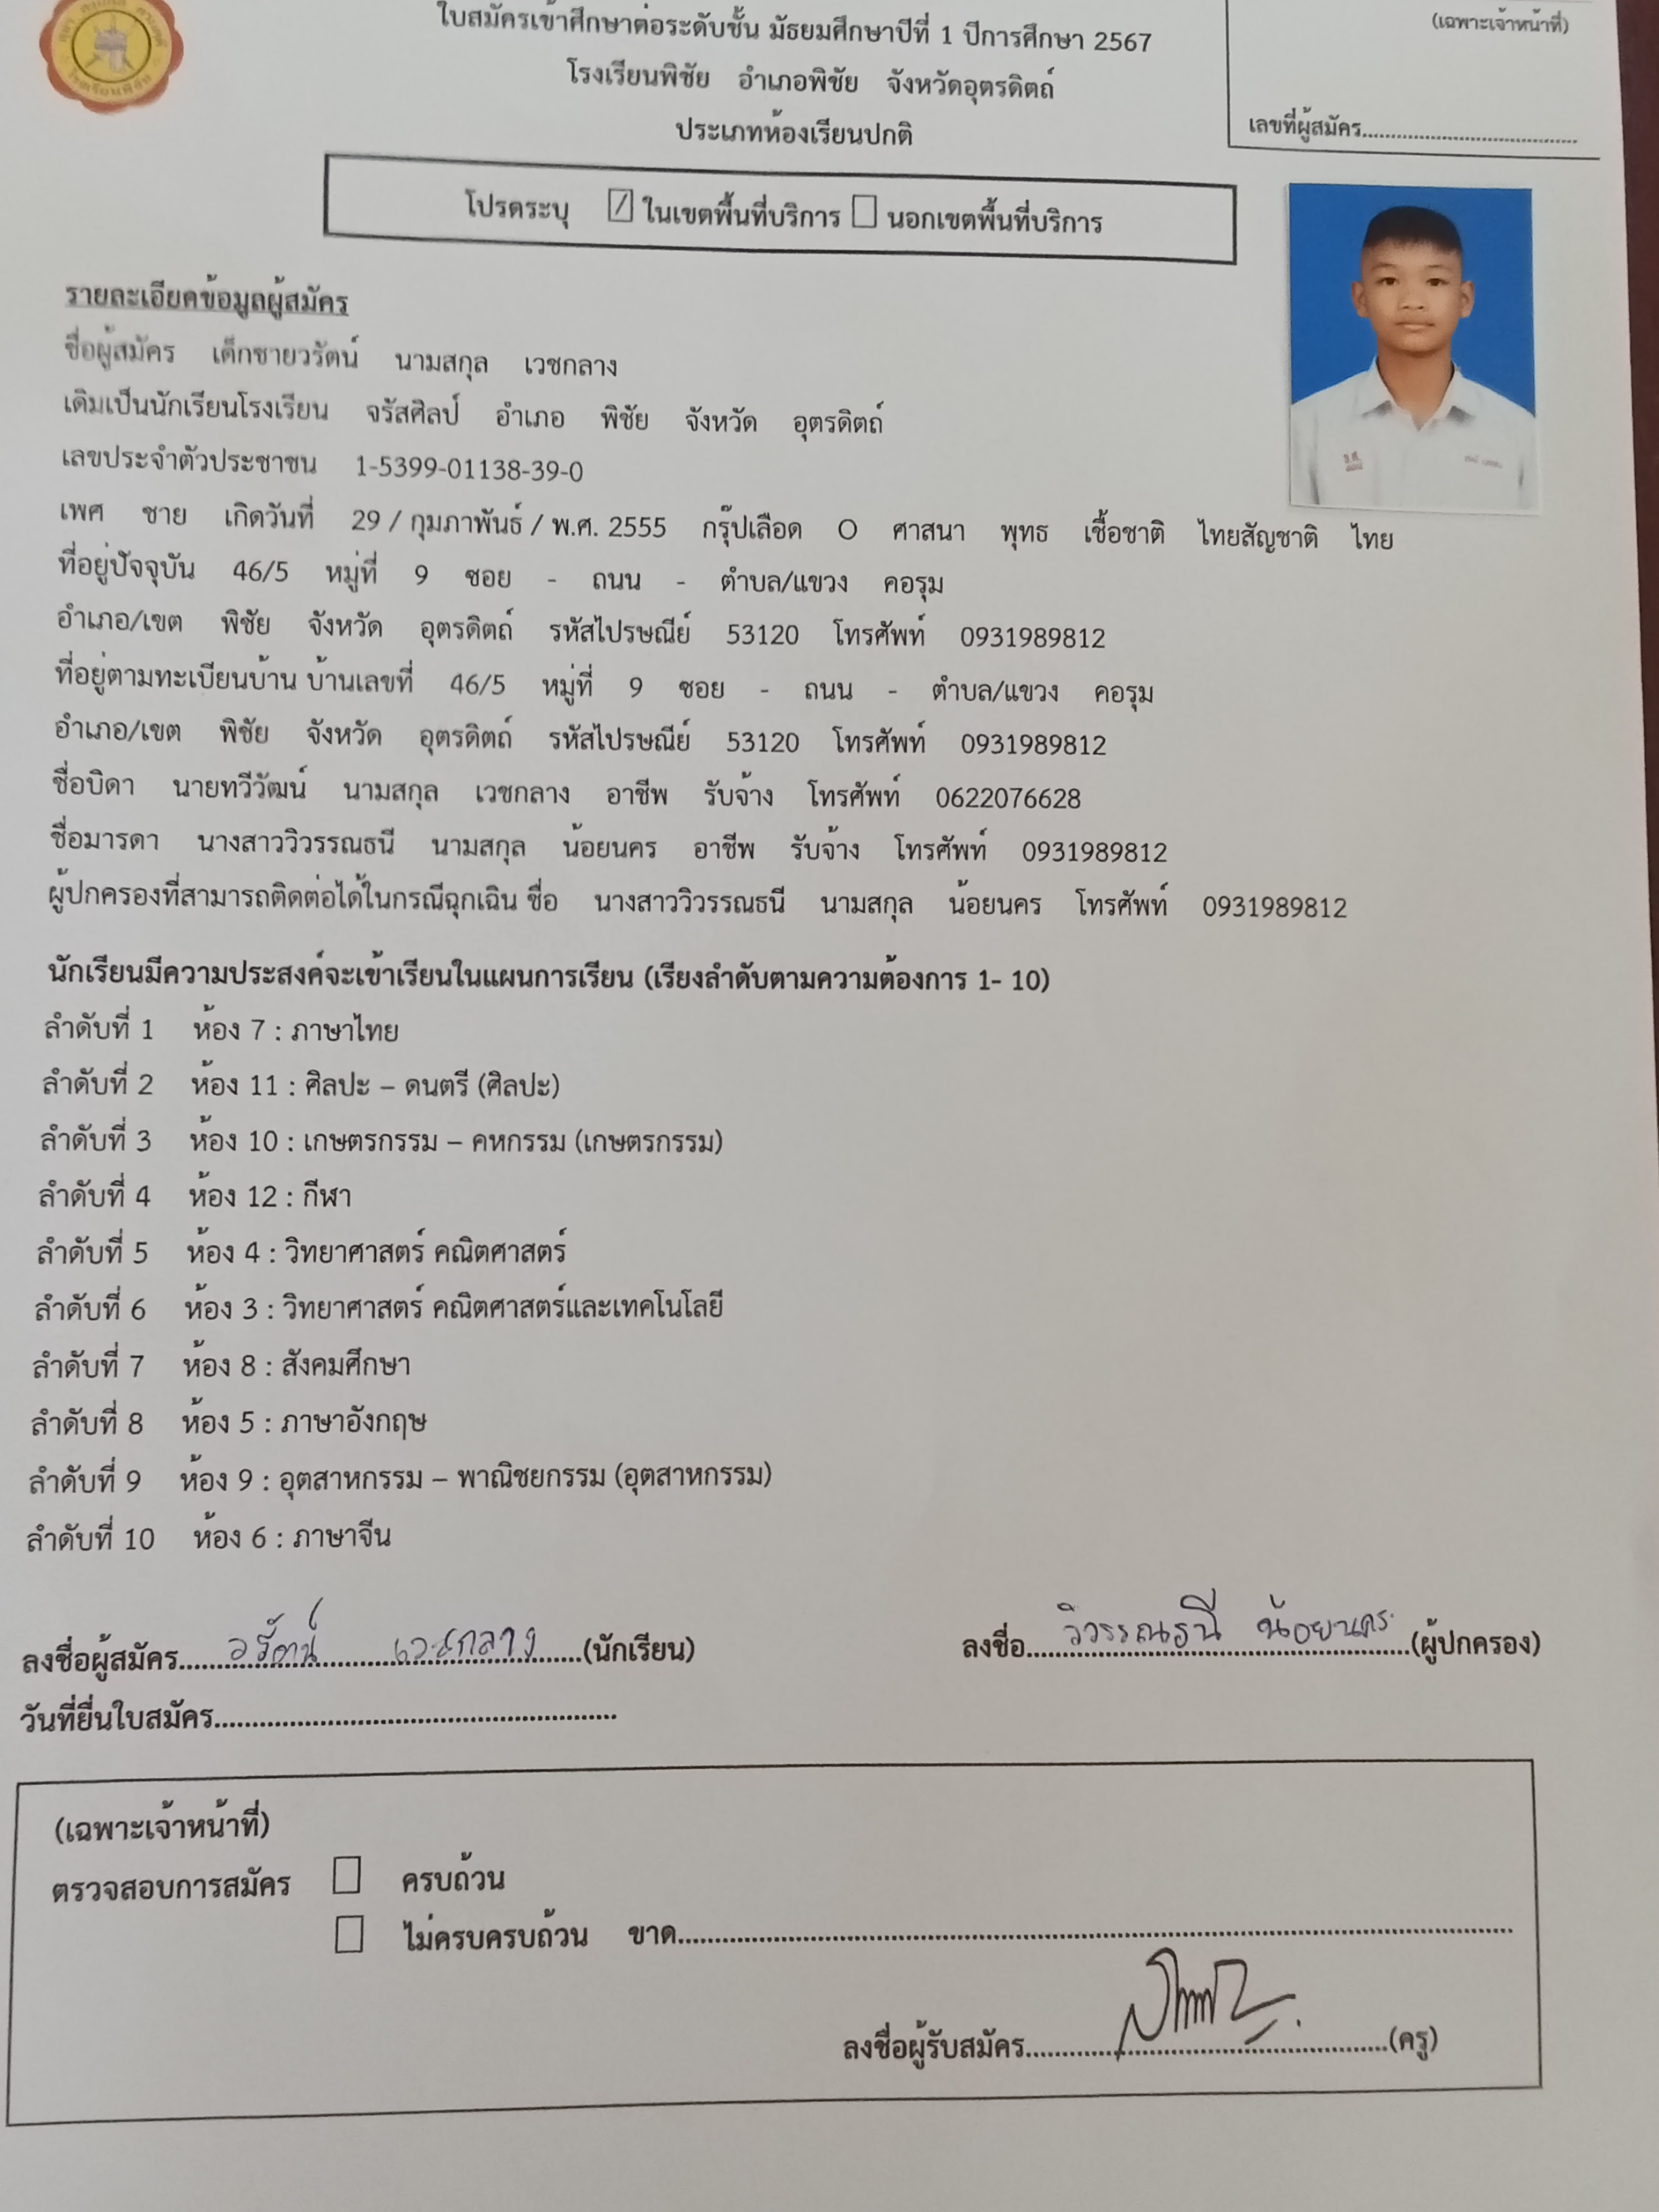 ใบสมัครเข้าศึกษาต่อระดับชั้น มัธยมศึกษาปีที่ 1 ปีการศึกษา 2567
(เฉพาะเจ้าหน้าที่)
โรงเรียนพิชัย อำเภอพิชัย จังหวัดอุตรดิตถ์
ประเภทห้องเรียนปกติ
เลขที่ผู้สมัคร....................................
โปรดระบุ ☑ ในเขตพื้นที่บริการ ☐ นอกเขตพื้นที่บริการ
รายละเอียดข้อมูลผู้สมัคร
ชื่อผู้สมัคร เด็กชายวรัตน์ นามสกุล เวชกลาง
เดิมเป็นนักเรียนโรงเรียน จรัสศิลป์ อำเภอ พิชัย จังหวัด อุตรดิตถ์
เลขประจำตัวประชาชน 1-5399-01138-39-0
เพศ ชาย เกิดวันที่ 29 / กุมภาพันธ์ / พ.ศ. 2555 กรุ๊ปเลือด O ศาสนา พุทธ เชื้อชาติ ไทยสัญชาติ ไทย
ที่อยู่ปัจจุบัน 46/5 หมู่ที่ 9 ซอย - ถนน - ตำบล/แขวง คอรุม
อำเภอ/เขต พิชัย จังหวัด อุตรดิตถ์ รหัสไปรษณีย์ 53120 โทรศัพท์ 0931989812
ที่อยู่ตามทะเบียนบ้าน บ้านเลขที่ 46/5 หมู่ที่ 9 ซอย - ถนน - ตำบล/แขวง คอรุม
อำเภอ/เขต พิชัย จังหวัด อุตรดิตถ์ รหัสไปรษณีย์ 53120 โทรศัพท์ 0931989812
ชื่อบิดา นายทวีวัฒน์ นามสกุล เวชกลาง อาชีพ รับจ้าง โทรศัพท์ 0622076628
ชื่อมารดา นางสาววิวรรณธนี นามสกุล น้อยนคร อาชีพ รับจ้าง โทรศัพท์ 0931989812
ผู้ปกครองที่สามารถติดต่อได้ในกรณีฉุกเฉิน ชื่อ นางสาววิวรรณธนี นามสกุล น้อยนคร โทรศัพท์ 0931989812
นักเรียนมีความประสงค์จะเข้าเรียนในแผนการเรียน (เรียงลำดับตามความต้องการ 1- 10)
ลำดับที่ 1 ห้อง 7 : ภาษาไทย
ลำดับที่ 2 ห้อง 11 : ศิลปะ – ดนตรี (ศิลปะ)
ลำดับที่ 3 ห้อง 10 : เกษตรกรรม – คหกรรม (เกษตรกรรม)
ลำดับที่ 4 ห้อง 12 : กีฬา
ลำดับที่ 5 ห้อง 4 : วิทยาศาสตร์ คณิตศาสตร์
ลำดับที่ 6 ห้อง 3 : วิทยาศาสตร์ คณิตศาสตร์และเทคโนโลยี
ลำดับที่ 7 ห้อง 8 : สังคมศึกษา
ลำดับที่ 8 ห้อง 5 : ภาษาอังกฤษ
ลำดับที่ 9 ห้อง 9 : อุตสาหกรรม – พาณิชยกรรม (อุตสาหกรรม)
ลำดับที่ 10 ห้อง 6 : ภาษาจีน
ลงชื่อผู้สมัคร....วรัตน์ เวชกลาง....(นักเรียน) ลงชื่อ....วิวรรณธนี น้อยนคร....(ผู้ปกครอง)
วันที่ยื่นใบสมัคร....................................................
(เฉพาะเจ้าหน้าที่)
ตรวจสอบการสมัคร ☐ ครบถ้วน
☐ ไม่ครบครบถ้วน ขาด....................................................
ลงชื่อผู้รับสมัคร....................................................(ครู)